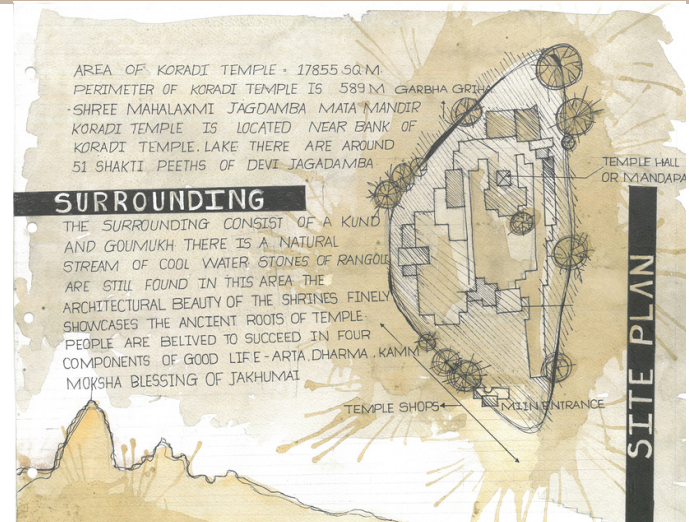 AREA OF KORADI TEMPLE - 17855 SQ.M.
PERIMETER OF KORADI TEMPLE IS 589 M
GARBHA GRIHA
-SHREE MAHALAXMI JAGDAMBA MATA MANDIR
KORADI TEMPLE IS LOCATED NEAR BANK OF
KORADI TEMPLE. LAKE THERE ARE AROUND
51 SHAKTI PEETHS OF DEVI JAGADAMBA
TEMPLE HALL
OR MANDAPA
SURROUNDING
THE SURROUNDING CONSIST OF A KUND
AND GOUMUKH THERE IS A NATURAL
STREAM OF COOL WATER STONES OF RANGOLI
ARE STILL FOUND IN THIS AREA THE
ARCHITECTURAL BEAUTY OF THE SHRINES FINELY
SHOWCASES THE ANCIENT ROOTS OF TEMPLE.
PEOPLE ARE BELIVED TO SUCCEED IN FOUR
COMPONENTS OF GOOD LIFE-ARTA,DHARMA,KAMM
MOKSHA BLESSING OF JAKHUMAI
TEMPLE SHOPS
MIIN ENTRANCE
SITE PLAN